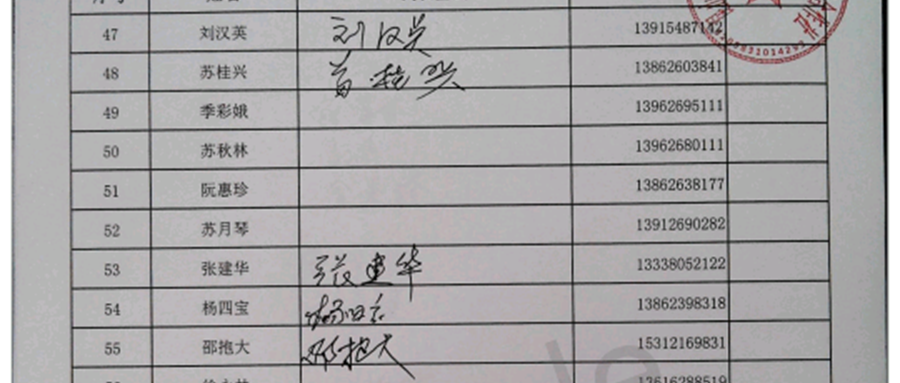 47 刘汉英 刘汉英 13915487142
48 苏桂兴 苏桂兴 13862603841
49 季彩娥 13962695111
50 苏秋林 13962680111
51 阮惠珍 13862638177
52 苏月琴 13912690282
53 张建华 张建华 13338052122
54 杨四宝 杨四宝 13862398318
55 邵抱大 邵抱大 15312169831
13616288519